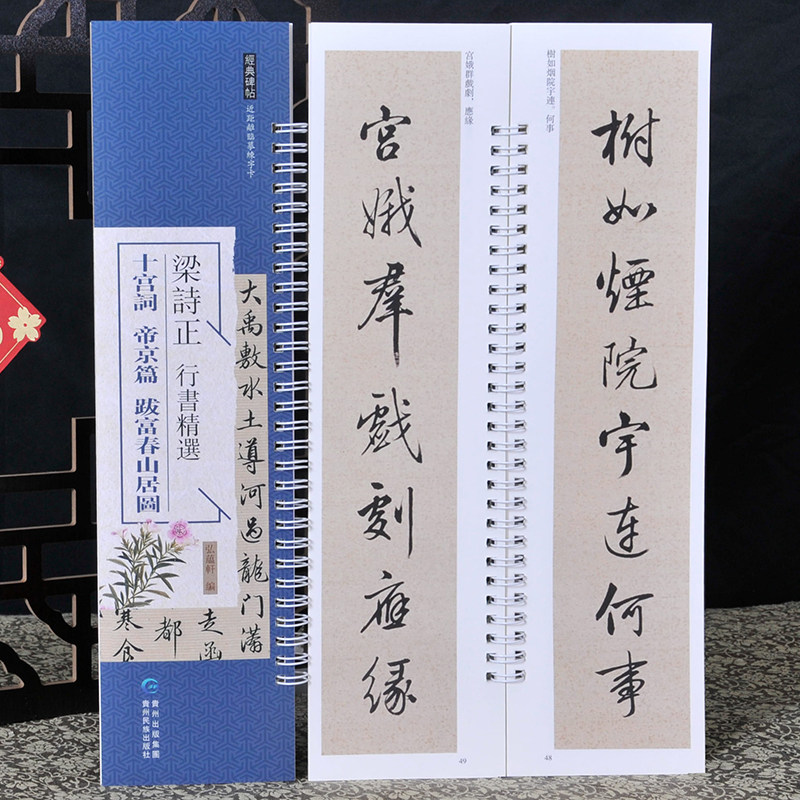 經典碑帖
近距離臨摹練字卡
梁詩正 行書精選
十宫詞 帝京篇 跋富春山居圖
弘蘊軒 编
大禹敷水土導河過龍门滿
走函
都
寒食
貴州出版集團
貴州民族出版社
宮娥群戲劇，應緣
宮娥羣戲劇應緣
49
樹如烟院宇連，何事
樹如煙院宇連何事
48